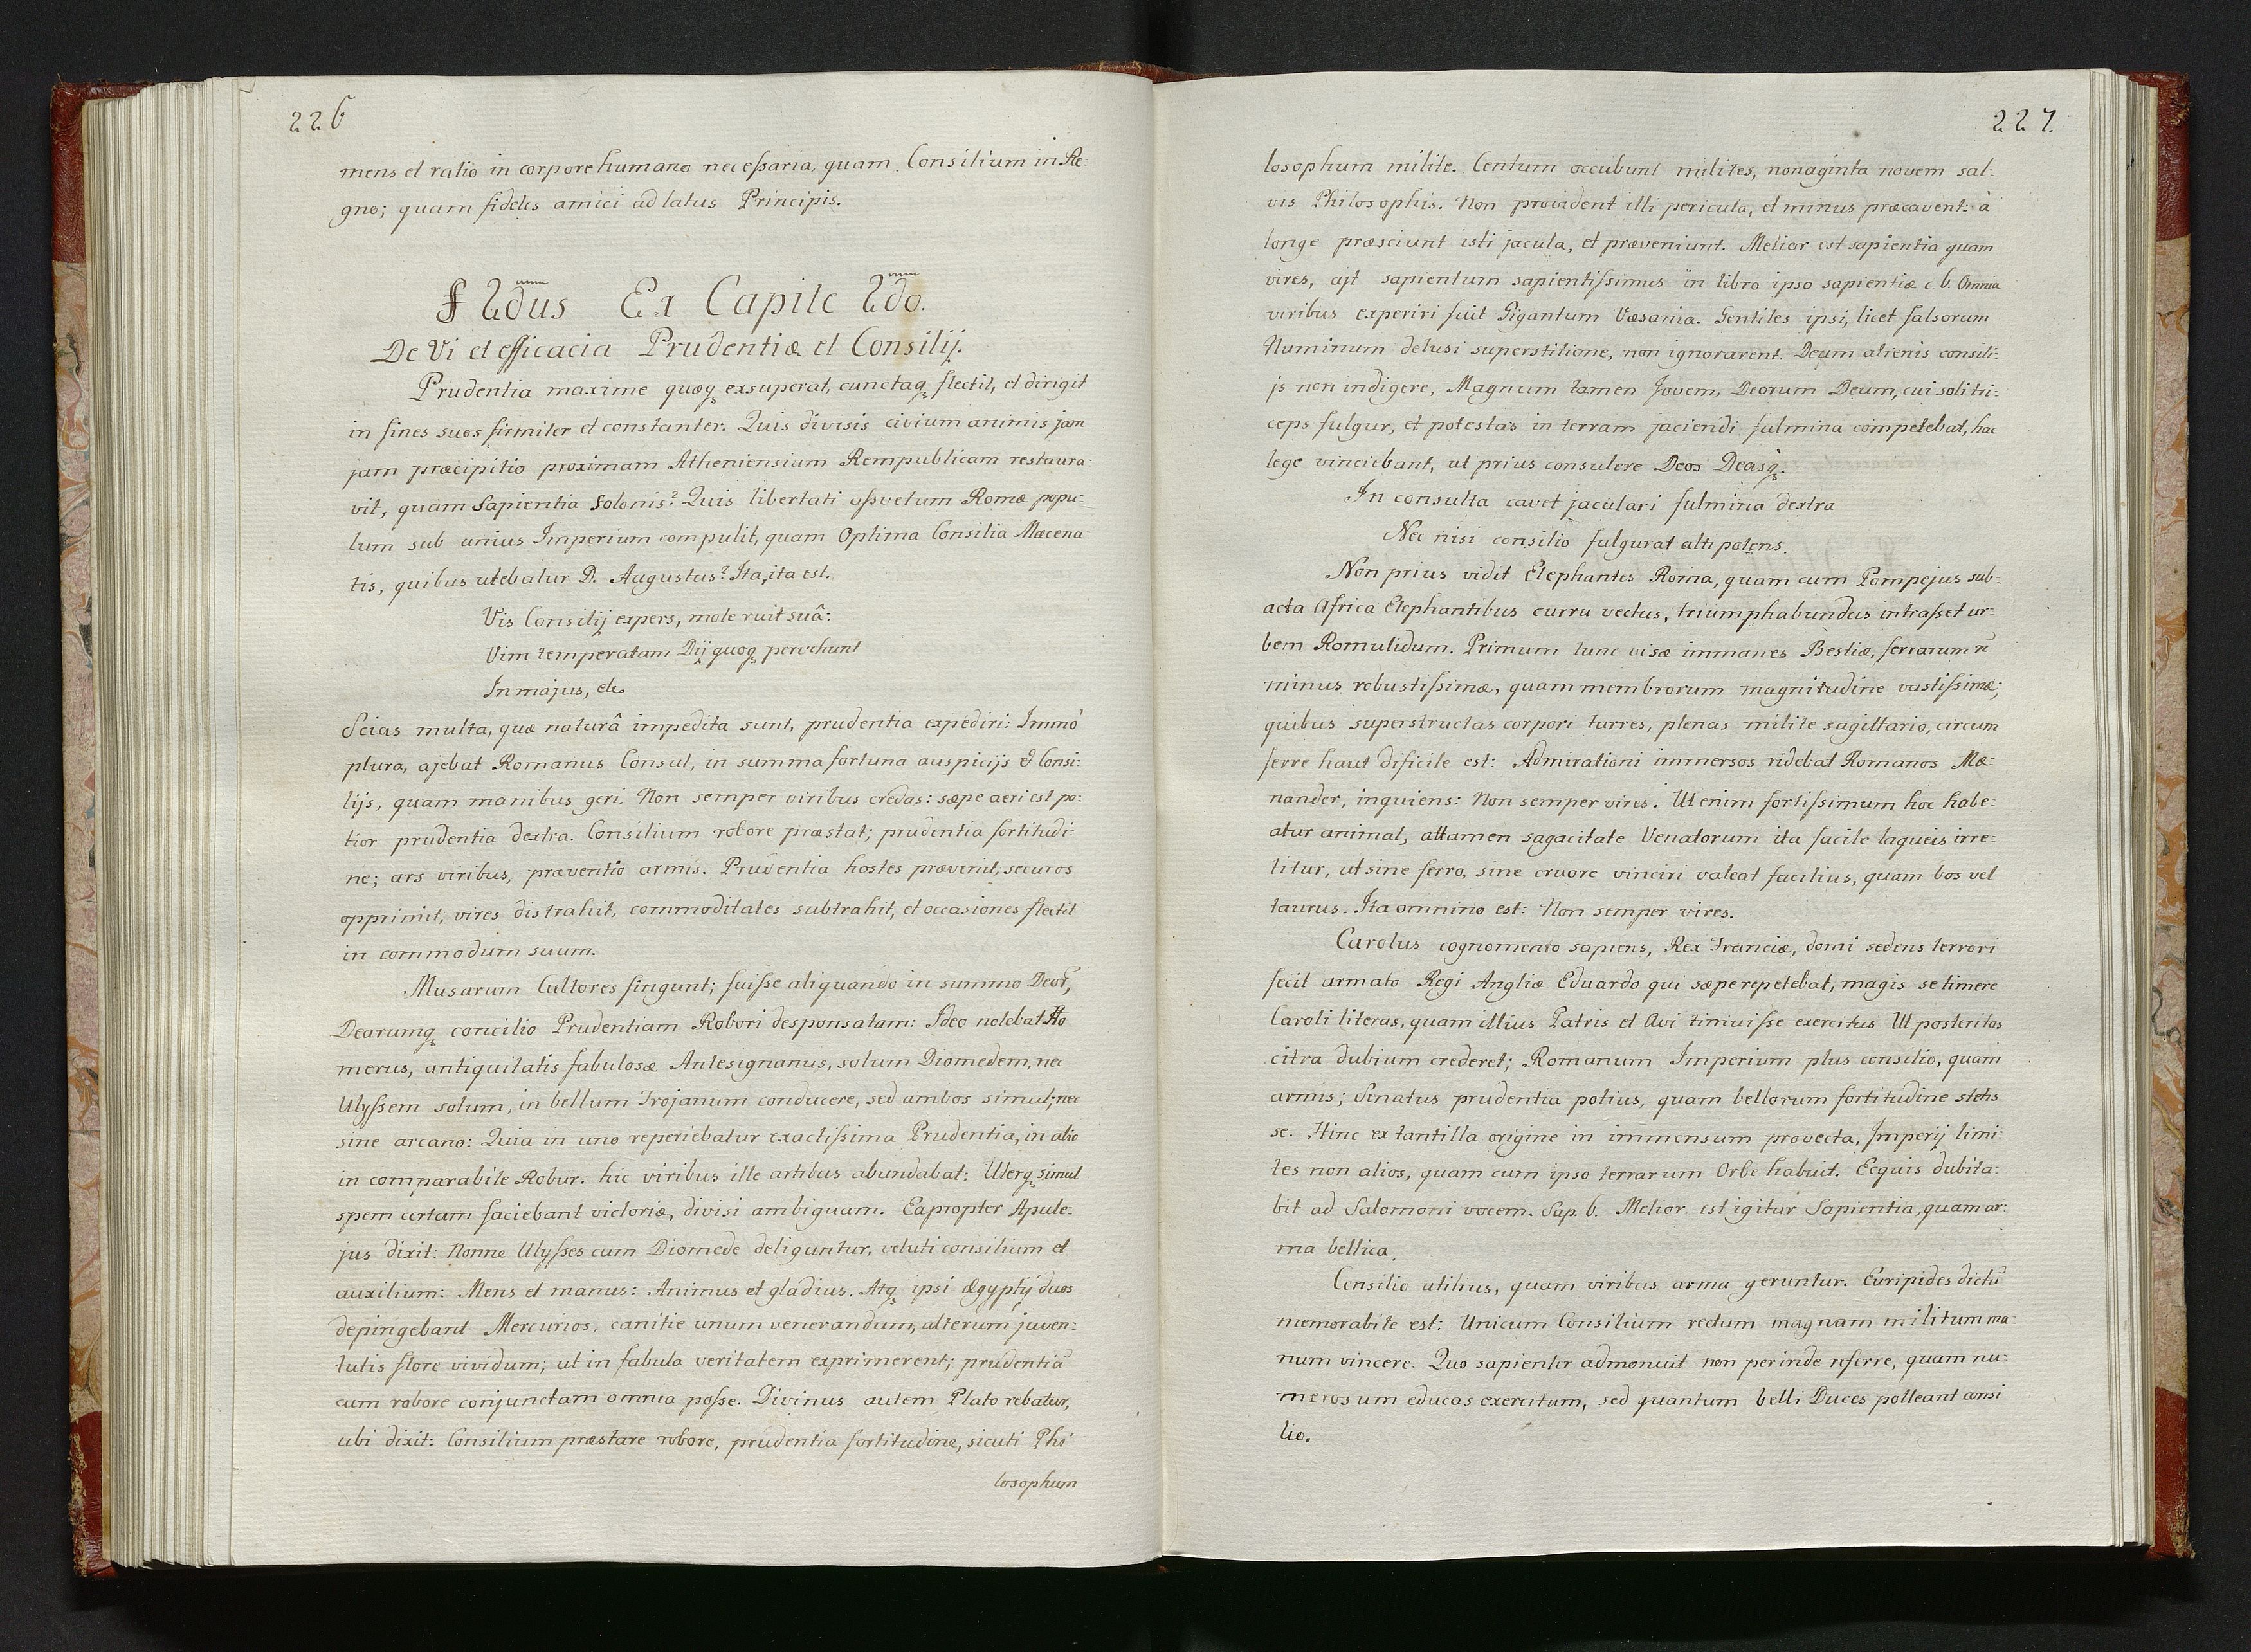 226
mens et ratio in corpore humano necessaria, quam Consilium in Re:
gno; quam fideles amici ad latus Principis.
§ 2dus Ex Capite 2do.
De Vi et efficacia Prudentiæ et Consilij.
Prudentia maxime quæq₃ exsuperat, cunctaq₃ flectit, et dirigit
in fines suos firmiter et constanter: Quis divisis civium animis jam
jam præcipitio proximam Atheniensium Rempublicam restaura:
vit, quam Sapientia Solonis? Quis libertati assvetum Romæ popu:
lum sub unius Imperium compulit, quam Optima Consilia Mæcena:
tis, quibus utebatur D. Augustus? Ita, ita est.
Vis Consilij expers, mole ruit suâ:
Vim temperatam Dij quoq₃ pervehunt
In majus, etc.
Scias multa, quæ naturâ impedita sunt, prudentia expediri: Immò
plura, ajebat Romanus Consul, in summa fortuna auspicijs & Consi:
lijs, quam manibus geri. Non semper viribus credas: sæpe aeri est po:
tior prudentia dextra. Consilium robore præstat; prudentia fortitudi:
ne; ars viribus, præventio armis. Prudentia hostes prævenit, securos
opprimit, vires distrahit, commoditates subtrahit, et occasiones flectit
in commodum suum.
Musarum Cultores fingunt; fuisse aliquando in summo Deor̃,
Dearumq₃ concilio Prudentiam Robori desponsatam: Ideo nolebat Ho
merus, antiquitatis fabulosæ Antesignanus, solum Diomedem, nec
Ulyssem solum, in bellum Trojanum conducere, sed ambos simul; nec
sine arcano: Quia in uno reperiebatur exactissima Prudentia, in alio
incomparabile Robur: hic viribus ille artibus abundabat: Uterq₃ simul
spem certam faciebant victoriæ, divisi ambiguam. Eapropter Apule:
jus dixit: Nonne Ulysses cum Diomede deliguntur, veluti consilium et
auxilium: Mens et manus: Animus et gladius. Atq₃ ipsi Ægyptij duos
depingebant Mercurios, canitie unum venerandum, alterum juven:
tutis flore vividum; ut in fabula veritatem exprimerent; prudentiã
cum robore conjunctam omnia posse. Divinus autem Plato rebatur,
ubi dixit: Consilium præstare robore, prudentia fortitudine, sicuti Phi
losophum
227.
losophum milite. Centum occubunt milites, nonaginta novem sal:
vis Philosophis. Non provident illi pericula, et minus præcavent: à
longe præsciunt isti jacula, et præveniunt. Melior est sapientia quam
vires, ajt sapientum sapientissimus in libro ipso sapientiæ c. 6. Omnia
viribus experiri fuit Gigantum Væsania. Gentiles ipsi, licet falsorum
Numinum delusi superstitione, non ignorarent. Deum alienis consili:
js non indigere, Magnum tamen Jovem, Deorum Deum, cui soli tri:
ceps fulgur, et potestas in terram jaciendi fulmina competebat, hac
lege vinciebant, ut prius consulere Deos Deasq₃.
In consulta cavet jaculari fulmina dextra
Nec nisi consilio fulgurat altipotens.
Non prius vidit Elephantes Roma, quam cum Pompejus sub:
acta Africa Elephantibus curru vectus, triumphabundus intrasset ur:
bem Romulidum. Primum tunc visæ immanes Bestiæ, ferrarum ñ
minus robustissimæ, quam membrorum magnitudine vastissimæ;
quibus superstructas corpori turres, plenas milite sagittario, circum
ferre haut dificile est: Admirationi immersos ridebat Romanos Mæ:
nander, inquiens: Non semper vires. Ut enim fortissimum hoc habe:
atur animal, attamen sagacitate Venatorum ita facile laqueis irre:
titur, ut sine ferro, sine cruore vinciri valeat facilius, quam bos vel
taurus. Ita omnino est: Non semper vires.
Carolus cognomento sapiens, Rex Franciæ, domi sedens terrori
fecit armato Regi Angliæ Eduardo qui sæpe repetebat, magis se timere
Caroli literas, quam illius Patris et Avi timuisse exercitus Ut posteritas
citra dubium crederet; Romanum Imperium plus consilio, quam
armis; Senatus prudentia potius, quam bellorum fortitudine stetis
se. Hinc ex tantilla origine in immensum provecta, Imperij limi:
tes non alios, quam cum ipso terrarum Orbe habuit. Ecquis dubita:
bit ad Salomoni vocem. Sap. 6. Melior est igitur Sapientia, quam ar:
ma bellica.
Consilio utilius, quam viribus arma geruntur. Euripides dictũ
memorabile est: Unicum Consilium rectum magnam militum ma:
num vincere. Quo sapienter admonuit non perinde referre, quam nu:
merosum educas exercitum, sed quantum belli Duces polleant consi
lio.